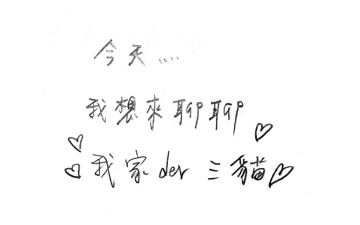 今天....
我想來聊聊
我家der三貓